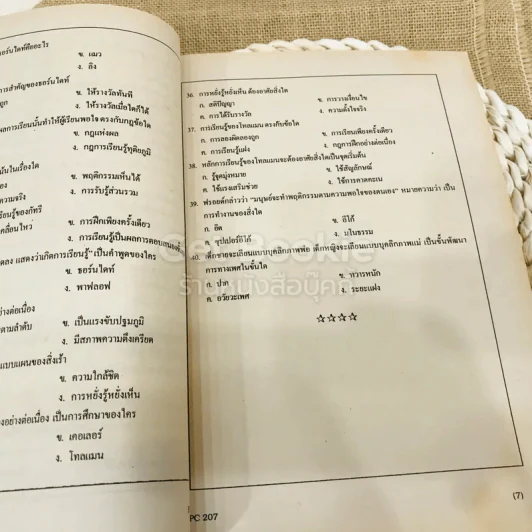 อร์นไดท์คืออะไร
ข. แมว
ง. ลิง
การสำคัญของธอร์นไดท์
ข. ให้รางวัลทันที
ถูก
ง. ให้รางวัลเมื่อใดก็ได้
ผลการเรียนนั้นทำให้ผู้เรียนพอใจ ตรงกับกฎข้อใด
ข. กฎแห่งผล
ง. กฎการเรียนรู้ทุติยภูมิ
น้นในเรื่องใด
ข. พฤติกรรมเห็นได้
ง. การรับรู้ส่วนรวม
เรียนรู้ของกัทรี
ข. การฝึกเพียงครั้งเดียว
คลื่อนไหว
ง. การเรียนรู้เป็นผลการตอบสนองต่อ
ดลง แสดงว่าเกิดการเรียนรู้" เป็นคำพูดของใคร
ข. ธอร์นไดท์
ง. พาฟลอฟ
ย่างต่อเนื่อง
ข. เป็นแรงขับปฐมภูมิ
ตามลำดับ
ง. มีสภาพความตึงเครียด
แบบแผนของสิ่งเร้า
ข. ความใกล้ชิด
ง. การหยั่งรู้หยั่งเห็น
งอย่างต่อเนื่อง เป็นการศึกษาของใคร
ข. เคอเลอร์
ง. โทลแมน
36. การหยั่งรู้หยั่งเห็น ต้องอาศัยสิ่งใด
ก. สติปัญญา ข. การวางเงื่อนไข
ค. การได้รับรางวัล ง. ความตั้งใจจริง
37. การเรียนรู้ของโทลแมน ตรงกับข้อใด
ก. การลองผิดลองถูก ข. การเรียนเพียงครั้งเดียว
ค. การเรียนรู้แฝง ง. กฎการฝึกอย่างต่อเนื่อง
38. หลักการเรียนรู้ของโทลแมนจะต้องอาศัยสิ่งใดเป็นจุดเริ่มต้น
ก. รู้จุดมุ่งหมาย ข. ใช้สัญลักษณ์
ค. ใช้แรงเสริมช่วย ง. ใช้การคาดคะเน
39. ฟรอยด์กล่าวว่า "มนุษย์จะทำพฤติกรรมตามความพอใจของตนเอง" หมายความว่า เป็น
การทำงานของสิ่งใด
ก. อิด ข. อีโก้
ค. ซุปเปอร์อีโก้ ง. มโนธรรม
40. เด็กชายจะเลียนแบบบุคลิกภาพพ่อ เด็กหญิงจะเลียนแบบบุคลิกภาพแม่ เป็นขั้นพัฒนา
การทางเพศในขั้นใด
ก. ปาก ข. ทวารหนัก
ค. อวัยวะเพศ ง. ระยะแฝง
ร้านหนังสือบุ๊คกี้
PC 207
(7)